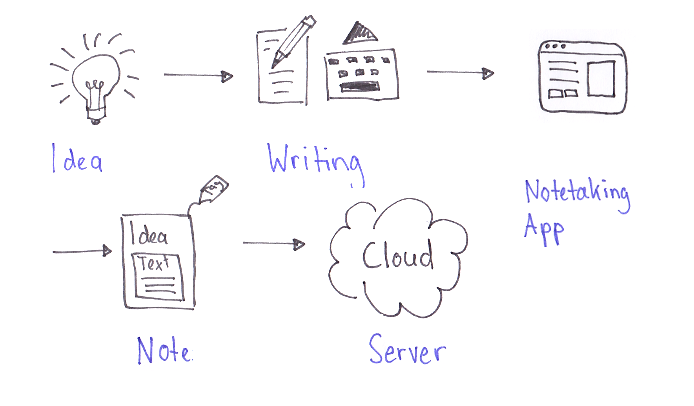 Idea
Writing
Notetaking
App
Idea
Text
Cloud
Note
Server